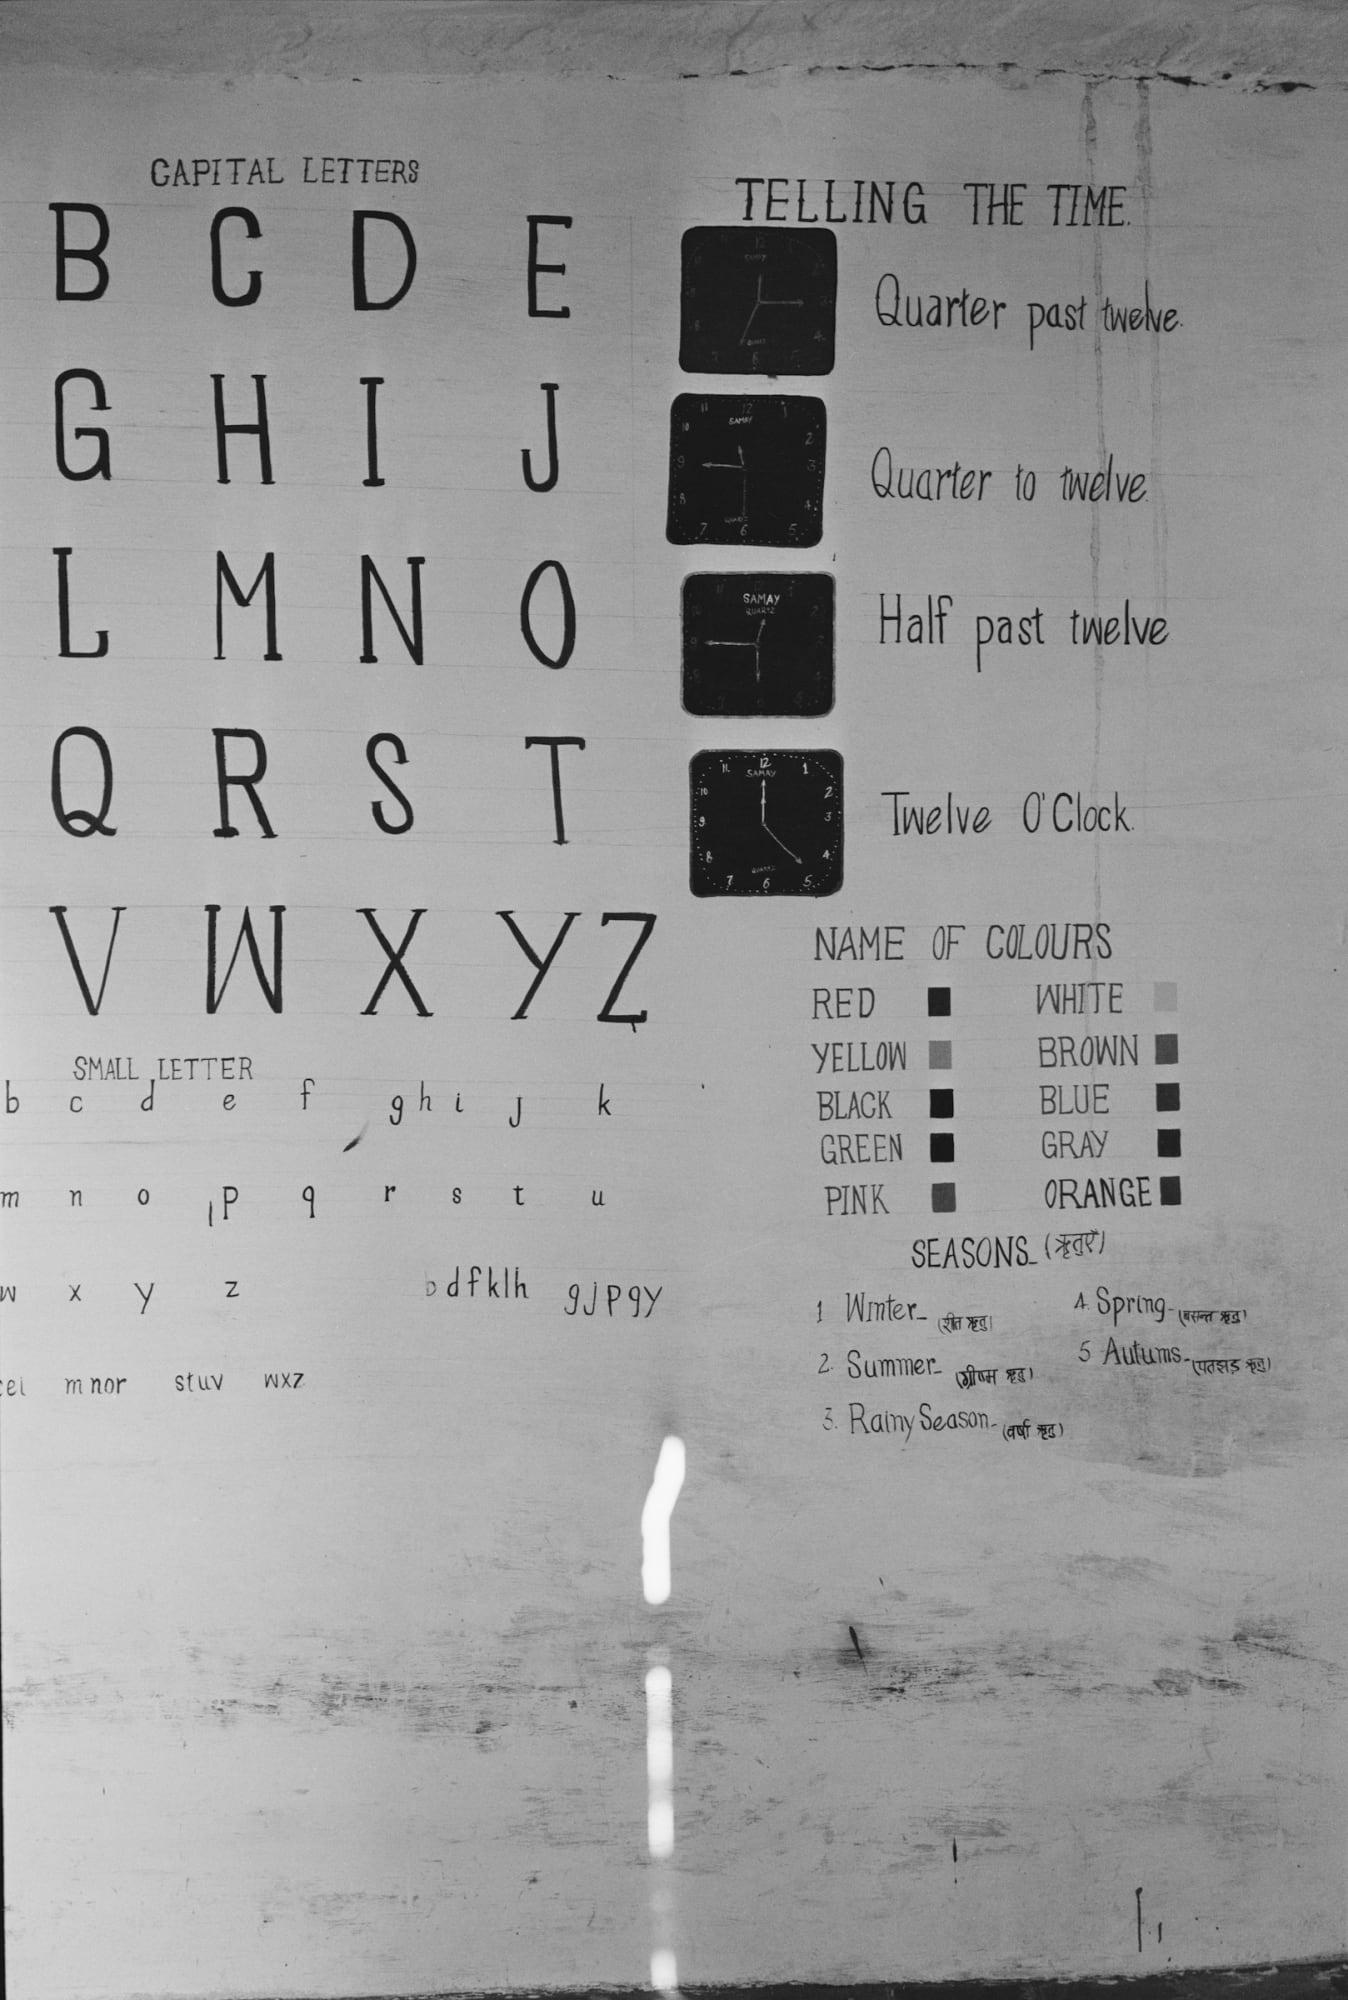 CAPITAL LETTERS
B C D E
G H I J
L M N O
Q R S T
V W X Y Z
SMALL LETTER
b c d e f g h i j k
m n o p q r s t u
w x y z bdfklh gjpqy
cei mnor stuv wxz
TELLING THE TIME.
12
3
4
5
6
7
8
QUARTZ
Quarter past twelve.
11 12 1
SAMAY
10 2
9 3
8 4
QUARTZ
7 6 5
Quarter to twelve
SAMAY
QUARTZ
9
Half past twelve
11 12 1
SAMAY
10 2
9 3
8 4
QUARTZ
7 6 5
Twelve O'Clock.
NAME OF COLOURS
RED WHITE
YELLOW BROWN
BLACK BLUE
GREEN GRAY
PINK ORANGE
SEASONS_ (ऋतुएँ)
1 Winter_ (शीत ऋतु) 4. Spring- (बसन्त ऋतु)
2. Summer_ (ग्रीष्म ऋतु) 5 Autums- (पतझड़ ऋतु)
3. Rainy Season- (वर्षा ऋतु)